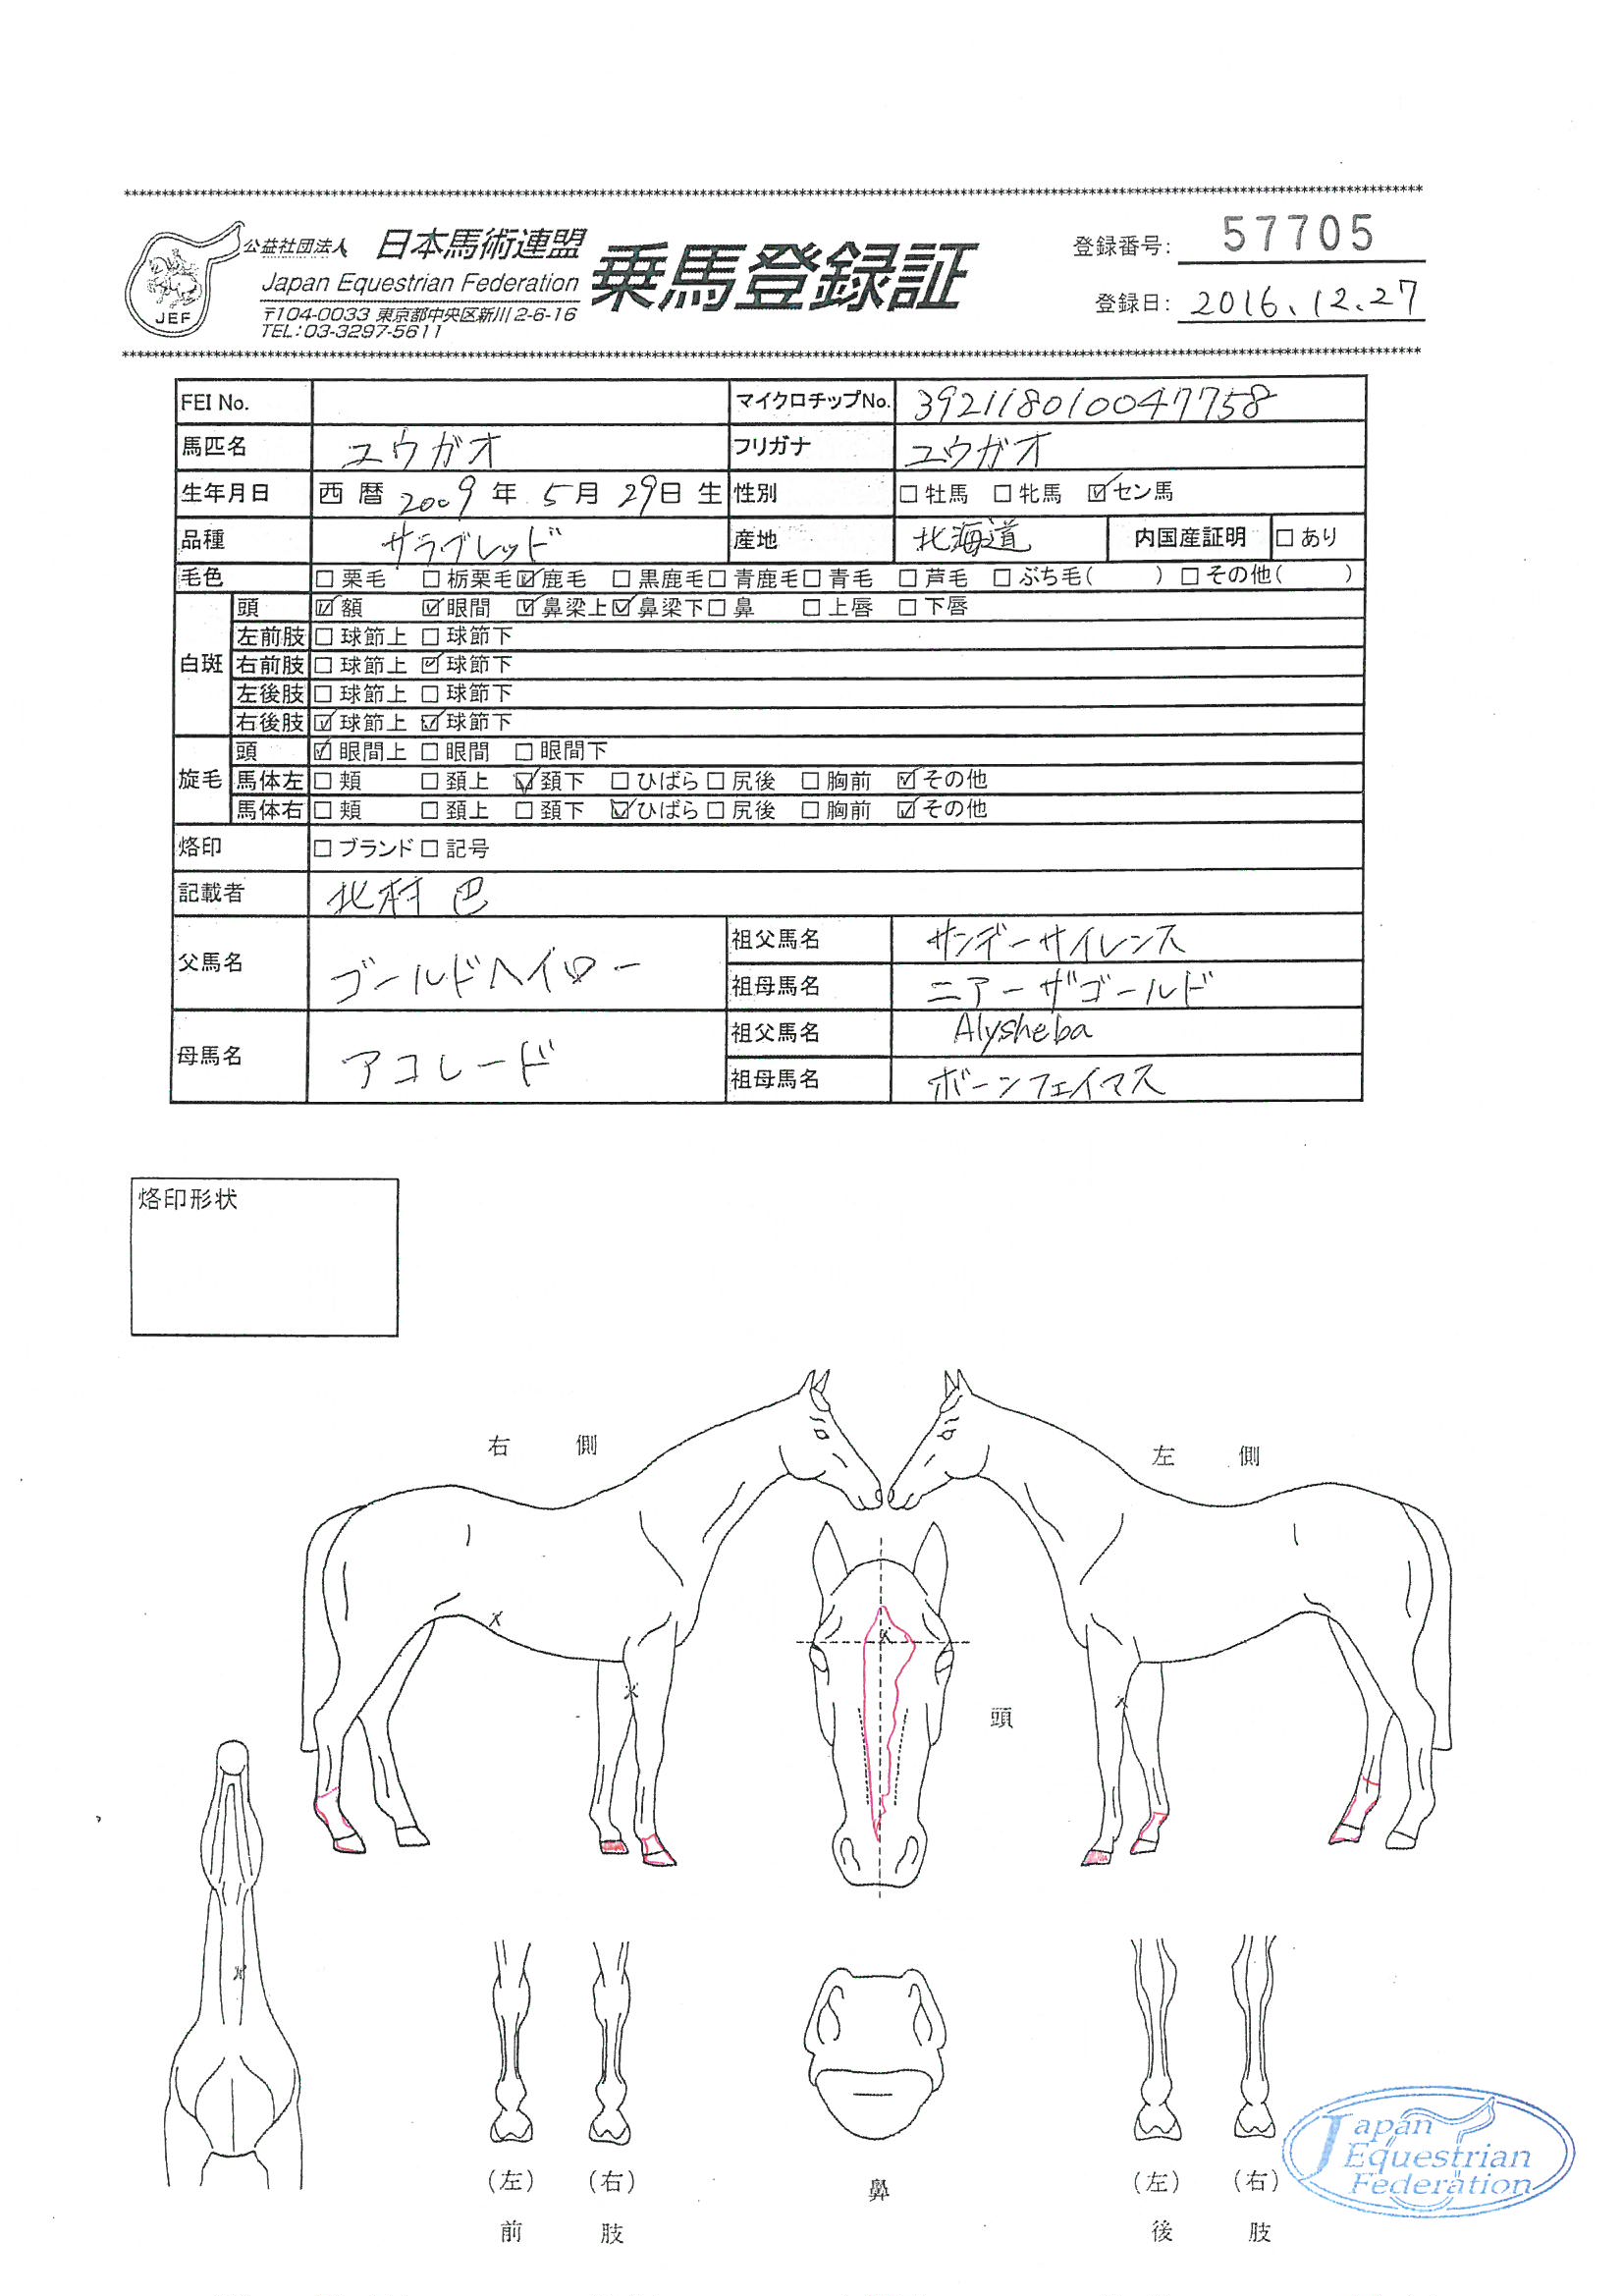 公益社団法人 日本馬術連盟
Japan Equestrian Federation
〒104-0033 東京都中央区新川2-6-16
TEL:03-3297-5611
JEF
乗馬登録証
登録番号: 57705
登録日: 2016.12.27
FEI No. マイクロチップNo. 392118010047758
馬匹名 ユウガオ フリガナ ユウガオ
生年月日 西暦 2009年 5月 29日 生 性別 □牡馬 □牝馬 ☑セン馬
品種 サラブレッド 産地 北海道 内国産証明 □あり
毛色 □栗毛 □栃栗毛 ☑鹿毛 □黒鹿毛 □青鹿毛 □青毛 □芦毛 □ぶち毛( ) □その他( )
白斑
頭 ☑額 ☑眼間 ☑鼻梁上 ☑鼻梁下 □鼻 □上唇 □下唇
左前肢 □球節上 □球節下
右前肢 □球節上 ☑球節下
左後肢 □球節上 □球節下
右後肢 ☑球節上 ☑球節下
旋毛
頭 ☑眼間上 □眼間 □眼間下
馬体左 □頬 □頚上 ☑頚下 □ひばら □尻後 □胸前 ☑その他
馬体右 □頬 □頚上 □頚下 ☑ひばら □尻後 □胸前 ☑その他
烙印 □ブランド □記号
記載者 北村 巴
父馬名 ゴールドヘイロー
祖父馬名 サンデーサイレンス
祖母馬名 ニアーザゴールド
母馬名 アコレード
祖父馬名 Alysheba
祖母馬名 ボーンフェイマス
烙印形状
右側 左側
頭
(左) (右) 鼻 (左) (右)
前肢 後肢
Japan
Equestrian
Federation